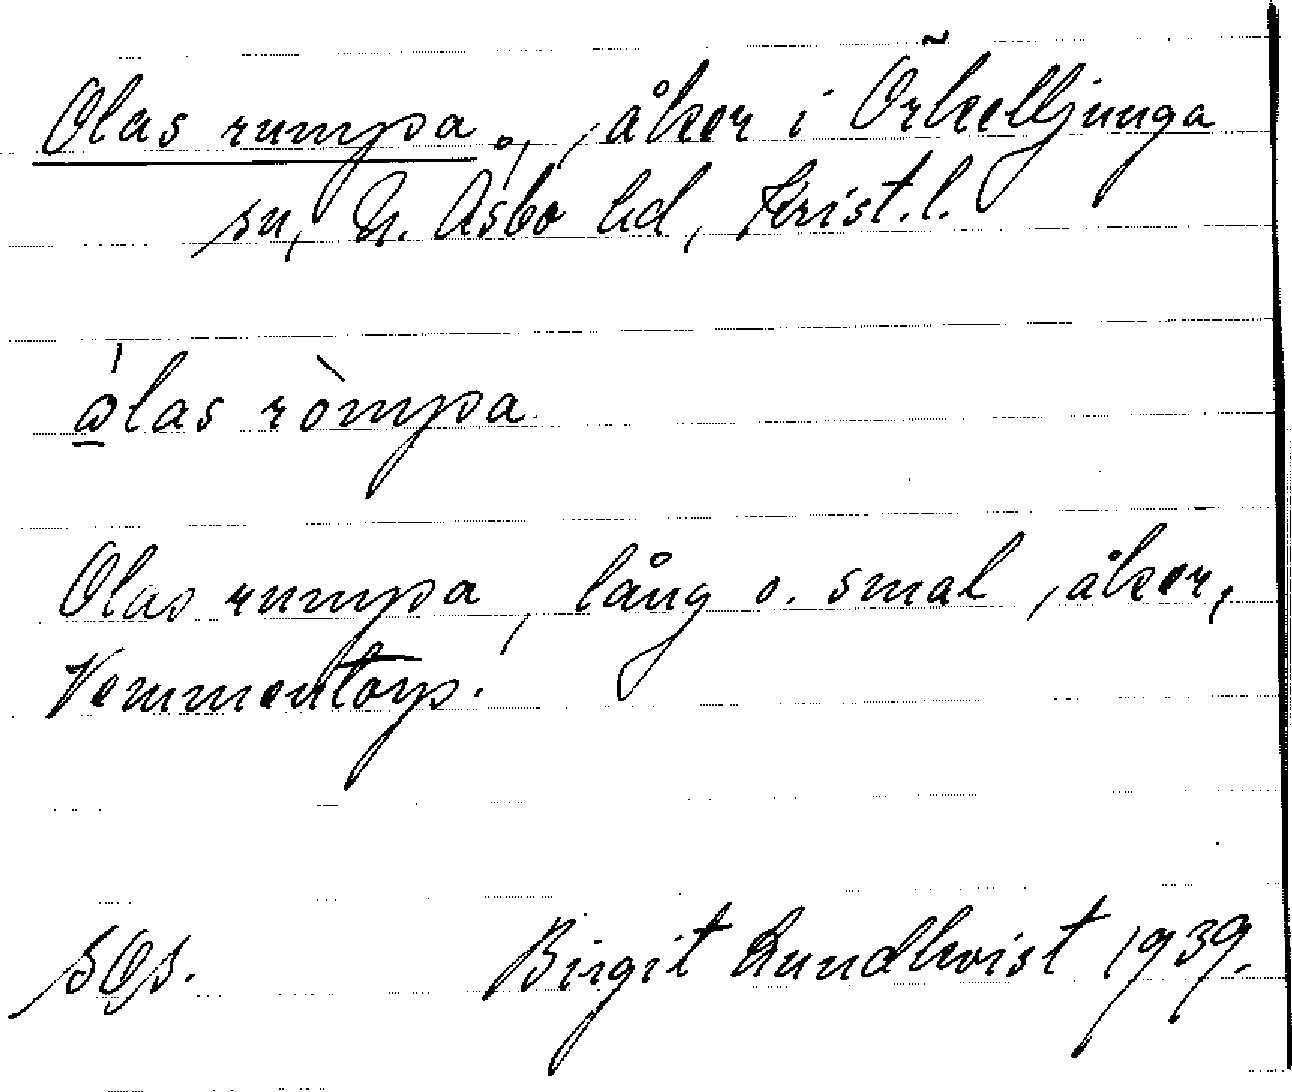 Olas rumpa, åker i Örkelljunga
sn, N. Åsbo hd, Krist. l.
ólas ròmpa
Olas rumpa, lång o. smal åker,
Vemmentorp.
Birgit Lundkvist 1939.